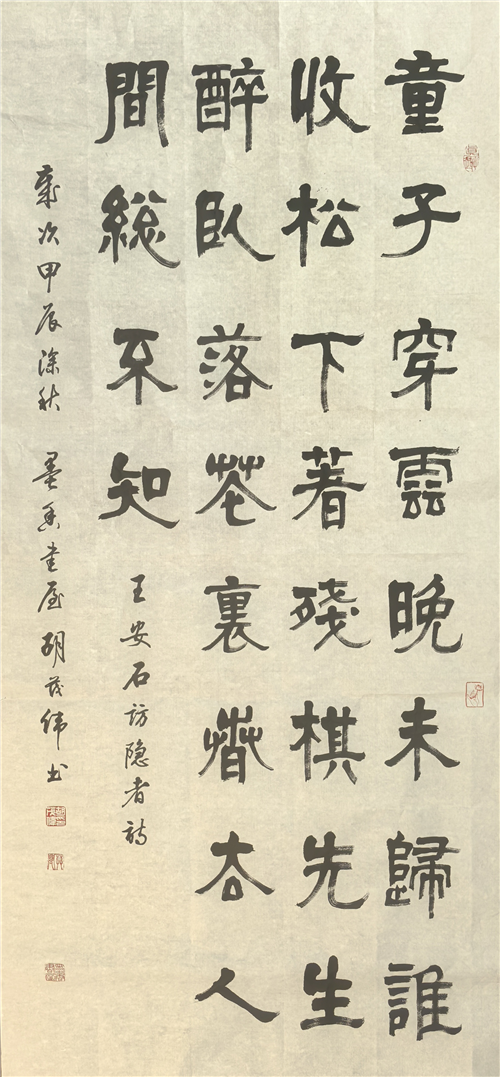 童子穿雲晚未歸誰
收松下著殘棋先生
醉臥落花裏春去人
間總不知
王安石訪隐者詩
歲次甲辰深秋 墨香書屋胡茂纬書